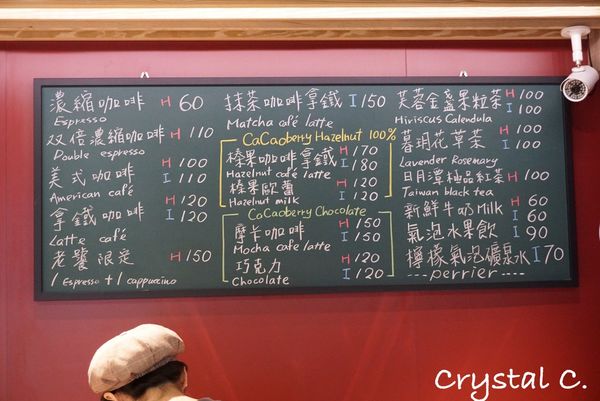 濃縮咖啡 H 60
Espresso
双倍濃縮咖啡 H 110
Double espresso
美式咖啡 H 100
I 110
American café
拿鐵咖啡 H 120
I 120
Latte café
老饕限定 H 150
1 Espresso + 1 cappuccino
抹茶咖啡拿鐵 I 150
Matcha café latte
CaCaoberry Hazelnut 100%
榛果咖啡拿鐵 H 170
I 180
Hazelnut café latte
榛果歐蕾 H 120
I 120
Hazelnut milk
CaCaoberry Chocolate
摩卡咖啡 H 150
I 150
Mocha café latte
巧克力 H 120
I 120
Chocolate
芙蓉金盞果粒茶 H 100
I 100
Hiviscus Calendula
暮玥花草茶 H 100
I 100
Lavender Rosemary
日月潭極品紅茶 H 100
Taiwan black tea
新鮮牛奶 Milk H 60
I 60
氣泡水果飲 I 90
檸檬氣泡礦泉水 I 70
---perrier----
Crystal C.